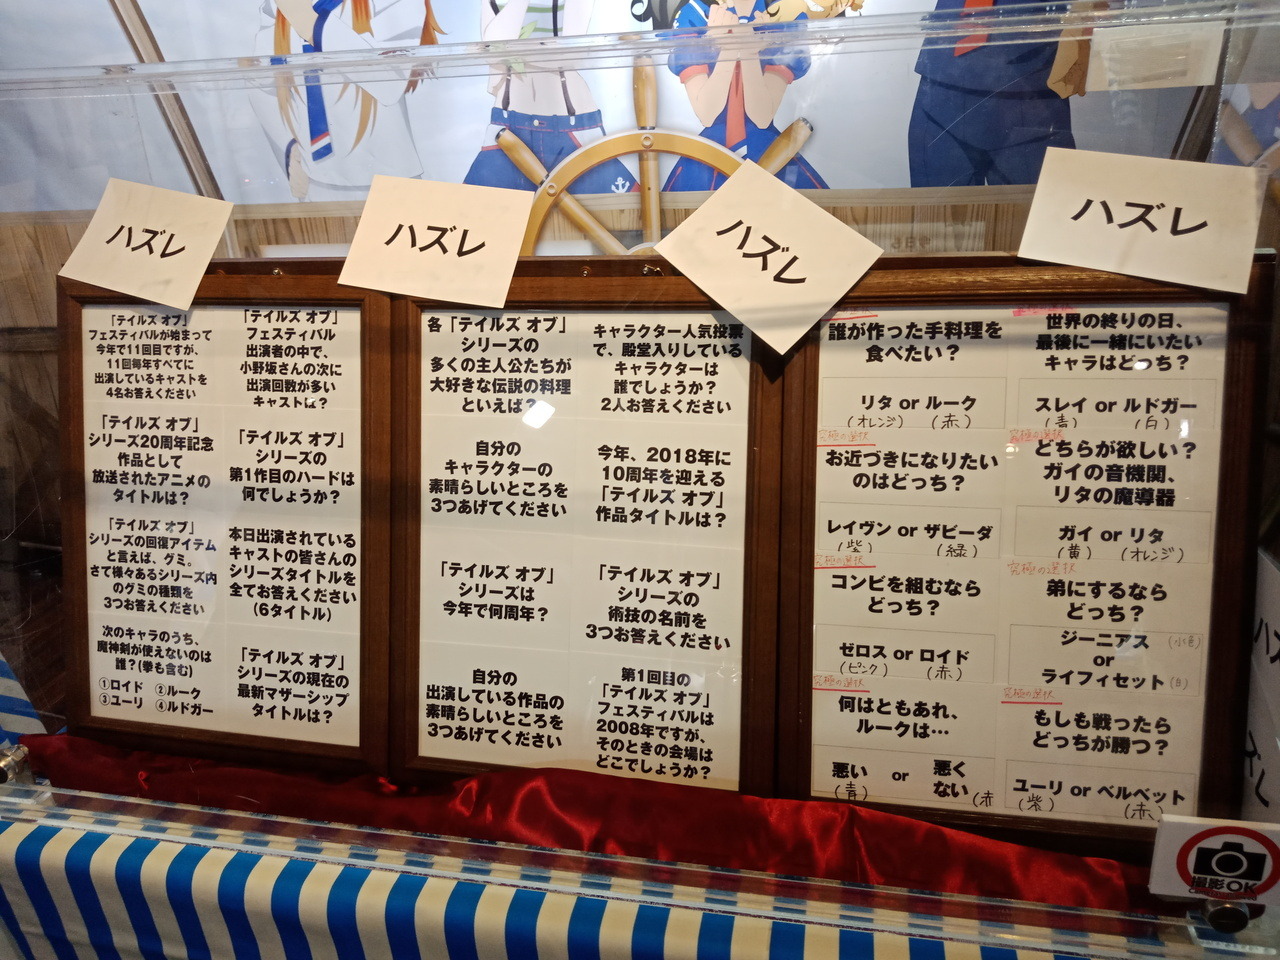 ハズレ
ハズレ
ハズレ
ハズレ
「テイルズ オブ」
フェスティバルが始まって
今年で11回目ですが、
11回毎年すべてに
出演しているキャストを
4名お答えください
「テイルズ オブ」
フェスティバル
出演者の中で、
小野坂さんの次に
出演回数が多い
キャストは?
「テイルズ オブ」
シリーズ20周年記念
作品として
放送されたアニメの
タイトルは?
「テイルズ オブ」
シリーズの
第1作目のハードは
何でしょうか?
「テイルズ オブ」
シリーズの回復アイテム
と言えば、グミ。
さて様々あるシリーズ内
のグミの種類を
3つお答えください
本日出演されている
キャストの皆さんの
シリーズタイトルを
全てお答えください
(6タイトル)
次のキャラのうち、
魔神剣が使えないのは
誰?(拳も含む)
①ロイド ②ルーク
③ユーリ ④ルドガー
「テイルズ オブ」
シリーズの現在の
最新マザーシップ
タイトルは?
各「テイルズ オブ」
シリーズの
多くの主人公たちが
大好きな伝説の料理
といえば?
キャラクター人気投票
で、殿堂入りしている
キャラクターは
誰でしょうか?
2人お答えください
自分の
キャラクターの
素晴らしいところを
3つあげてください
今年、2018年に
10周年を迎える
「テイルズ オブ」
作品タイトルは?
「テイルズ オブ」
シリーズは
今年で何周年?
「テイルズ オブ」
シリーズの
術技の名前を
3つお答えください
自分の
出演している作品の
素晴らしいところを
3つあげてください
第1回目の
「テイルズ オブ」
フェスティバルは
2008年ですが、
そのときの会場は
どこでしょうか?
誰が作った手料理を
食べたい?
リタ or ルーク
(オレンジ) (赤)
世界の終りの日、
最後に一緒にいたい
キャラはどっち?
スレイ or ルドガー
(青) (白)
究極の選択
お近づきになりたい
のはどっち?
レイヴン or ザビーダ
(紫) (緑)
究極の選択
どちらが欲しい?
ガイの音機関、
リタの魔導器
ガイ or リタ
(黄) (オレンジ)
究極の選択
コンビを組むなら
どっち?
ゼロス or ロイド
(ピンク) (赤)
究極の選択
弟にするなら
どっち?
ジーニアス (水色)
or
ライフィセット (白)
究極の選択
何はともあれ、
ルークは…
悪い or 悪く
ない
(青) (赤
究極の選択
もしも戦ったら
どっちが勝つ?
ユーリ or ベルベット
(紫) (赤)
撮影OK